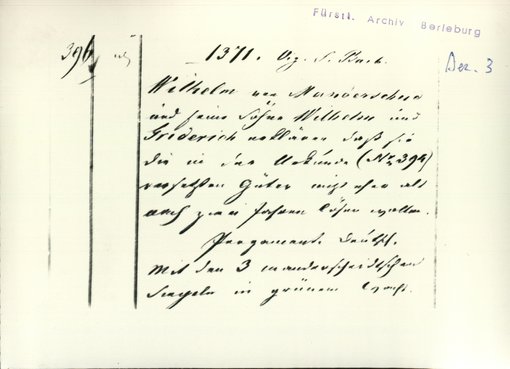 Fürstl. Archiv Berleburg
396
1371. Vig. S. Barb.
Dez. 3
Wilhelm von Manderscheid
und seine Söhne Wilhelm und
Friderich erklären daß sie
die in der Urkunde (Nr. 395)
versetzten Güter nicht eher als
nach zwei Jahren lösen wollen.
Pergament. Deutsch.
Mit den 3 manderscheidtschen
Siegeln in grünem Wachs.